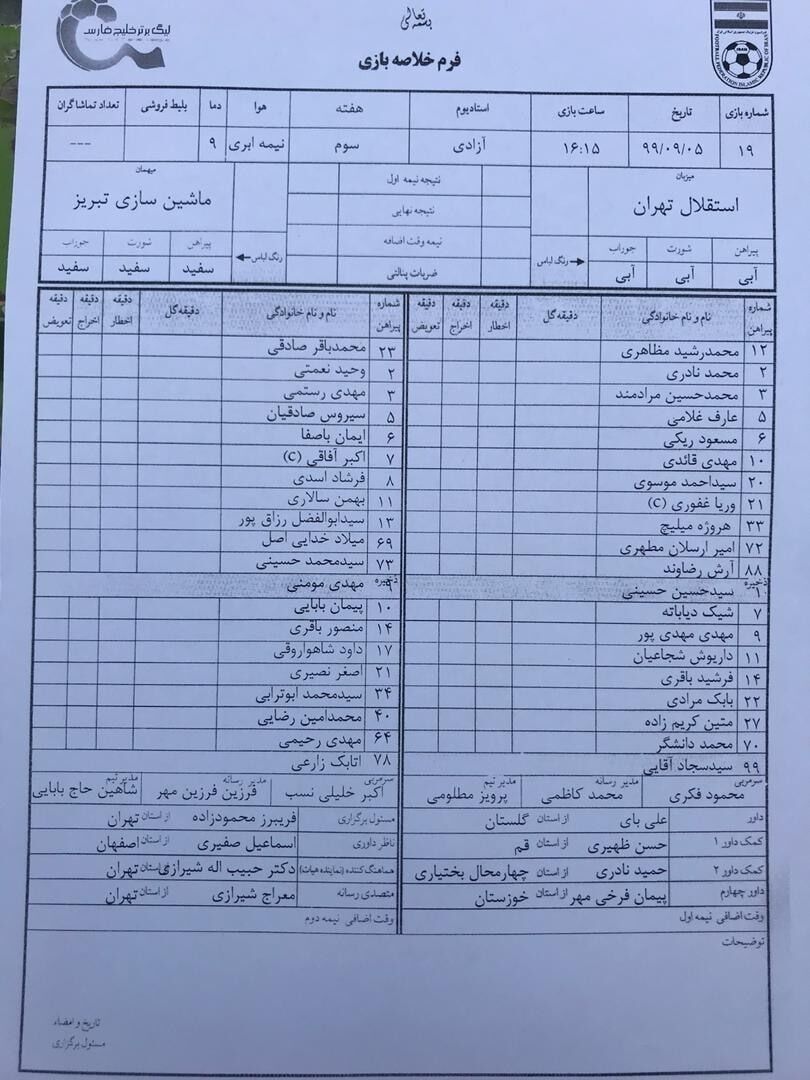 بسمه تعالی
لیگ برتر خلیج فارس
FOOTBALL FEDERATION ISLAMIC REPUBLIC OF IRAN
IRAN
فرم خلاصه بازی
شماره بازی تاریخ ساعت بازی استادیوم هفته هوا دما بلیط فروشی تعداد تماشاگران
۱۹ ۹۹/۰۹/۰۵ ۱۶:۱۵ آزادی سوم نیمه ابری ۹ ---
میزبان نتیجه نیمه اول میهمان
استقلال تهران نتیجه نهایی ماشین سازی تبریز
پیراهن شورت جوراب رنگ لباس نیمه وقت اضافه رنگ لباس پیراهن شورت جوراب
آبی آبی آبی ضربات پنالتی سفید سفید سفید
شماره پیراهن نام و نام خانوادگی دقیقه گل دقیقه اخطار دقیقه اخراج دقیقه تعویض شماره پیراهن نام و نام خانوادگی دقیقه گل دقیقه اخطار دقیقه اخراج دقیقه تعویض
۱۲ محمدرشید مظاهری ۲۳ محمدباقر صادقی
۲ محمد نادری ۲ وحید نعمتی
۳ محمدحسین مرادمند ۳ مهدی رستمی
۵ عارف غلامی ۵ سیروس صادقیان
۶ مسعود ریکی ۶ ایمان باصفا
۱۰ مهدی قائدی ۷ اکبر آفاقی (C)
۲۰ سیداحمد موسوی ۸ فرشاد اسدی
۲۱ وریا غفوری (C) ۱۱ بهمن سالاری
۳۳ هروژه میلیچ ۱۳ سیدابوالفضل رزاق پور
۷۲ امیر ارسلان مطهری ۶۹ میلاد خدایی اصل
۸۸ آرش رضاوند ۷۳ سیدمحمد حسینی
ذخیره ۱ سیدحسین حسینی ذخیره مهدی مومنی
۷ شیک دیاباته ۱۰ پیمان بابایی
۹ مهدی مهدی پور ۱۴ منصور باقری
۱۱ داریوش شجاعیان ۱۷ داود شاهواروقی
۱۴ فرشید باقری ۲۱ اصغر نصیری
۲۲ بابک مرادی ۳۴ سیدمحمد ابوترابی
۲۷ متین کریم زاده ۴۰ محمدامین رضایی
۷۰ محمد دانشگر ۶۴ مهدی رحیمی
۹۹ سیدسجاد آقایی ۷۸ اتابک زارعی
سرمربی محمود فکری مدیر رسانه محمد کاظمی مدیر تیم پرویز مظلومی سرمربی اکبر خلیلی نسب مدیر رسانه فرزین فرزین مهر مدیر تیم شاهین حاج بابایی
داور علی بای از استان گلستان مسئول برگزاری فریبرز محمودزاده از استان تهران
کمک داور ۱ حسن ظهیری از استان قم ناظر داوری اسماعیل صفیری از استان اصفهان
کمک داور ۲ حمید نادری از استان چهارمحال بختیاری هماهنگ کننده (نماینده هیات) دکتر حبیب اله شیرازی از استان تهران
داور چهارم پیمان فرخی مهر از استان خوزستان متصدی رسانه معراج شیرازی از استان تهران
وقت اضافی نیمه اول وقت اضافی نیمه دوم
توضیحات
تاریخ و امضاء
مسئول برگزاری